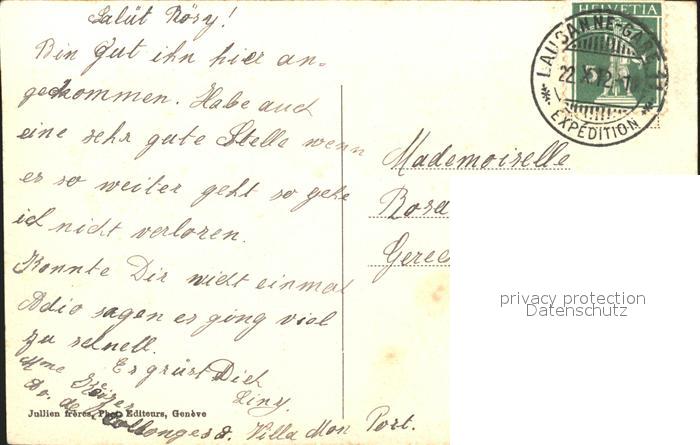 Salüt Rösy!
Bin gut ihn hier an-
gekommen. Habe auch
eine sehr gute Stelle wenn
es so weiter geht so gehe
ich nicht verloren.
Konnte Dir nicht einmal
Adio sagen es ging viel
zu schnell.
Es grüst Dich
Liny.
Mme
Av. de Collonges 8. Villa Mon Port.
Jullien frères, Phot. Editeurs, Genève
HELVETIA
LAUSANNE-GARE
22 X 12
EXPÉDITION
Mademoiselle
Rosa
Gerec
privacy protection
Datenschutz